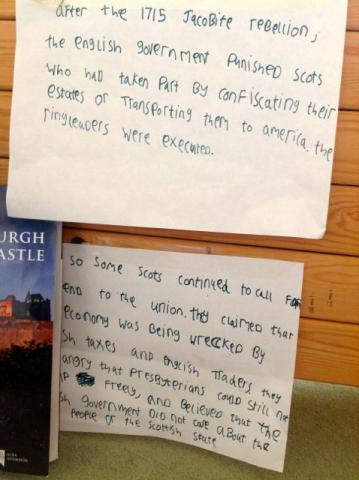 after the 1715 Jacobite rebellion,
the english government punished scots
who had taken part by confiscating their
estates or transporting them to america. the
ringleaders were executed.
URGH
ASTLE
so some scots continued to call for
end to the union. they claimed that
economy was being wrecked by
sh taxes and english traders, they
angry that presbyterians could still not
ip freely, and believed that the
sh government did not care about the
people of the scottish state